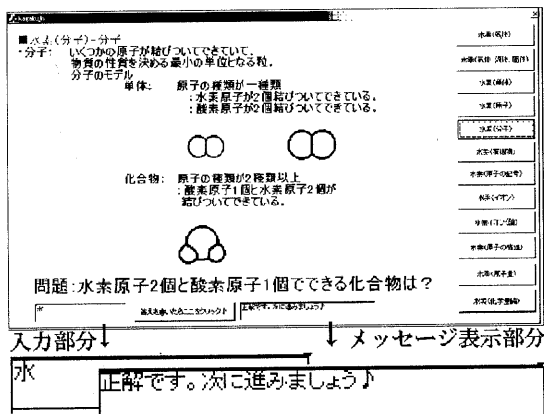 ■水素(分子)-分子
・分子: いくつかの原子が結びついてできていて、
物質の性質を決める最小の単位となる粒。
分子のモデル
単体: 原子の種類が一種類
:水素原子が2個結びついてできている。
:酸素原子が2個結びついてできている。
化合物: 原子の種類が2種類以上
:酸素原子1個と水素原子2個が
結びついてできている。
問題:水素原子2個と酸素原子1個でできる化合物は?
水
答えを書いたらここをクリック!
正解です。次に進みましょう♪
水素(気体)
水素(気体、液体、固体)
水素(単体)
水素(原子)
水素(分子)
水素(原子の記号)
水素(イオン)
水素(原子の構造)
水素(原子量)
入力部分↓
↓ メッセージ表示部分
水
正解です。次に進みましょう♪